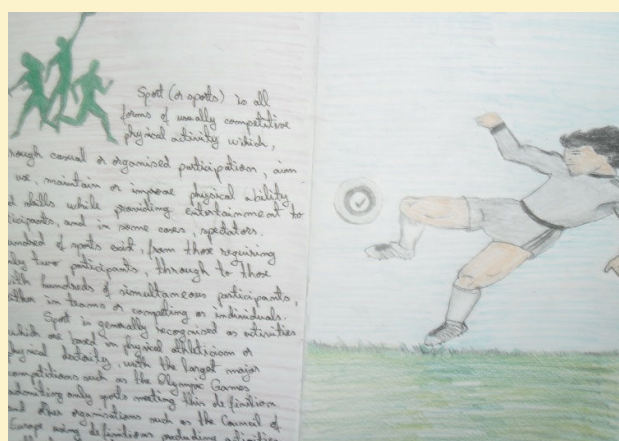 Sport (or sports) is all
forms of usually competitive
physical activity which,
rough casual or organised participation, aim
use, maintain or improve physical ability
d skills while providing entertainment to
icipants, and in some cases, spectators.
undred of sports exist, from those requiring
ly two participants, through to those
ith hundreds of simultaneous participants,
ither in teams or competing as individuals.
Sport is generally recognised as activities
which are based in physical athleticism or
hysical dexterity, with the largest major
ompetitions such as the Olympic Games
admitting only sports meeting this definition
and other organisations such as the Council of
Europe using definitions precluding activities